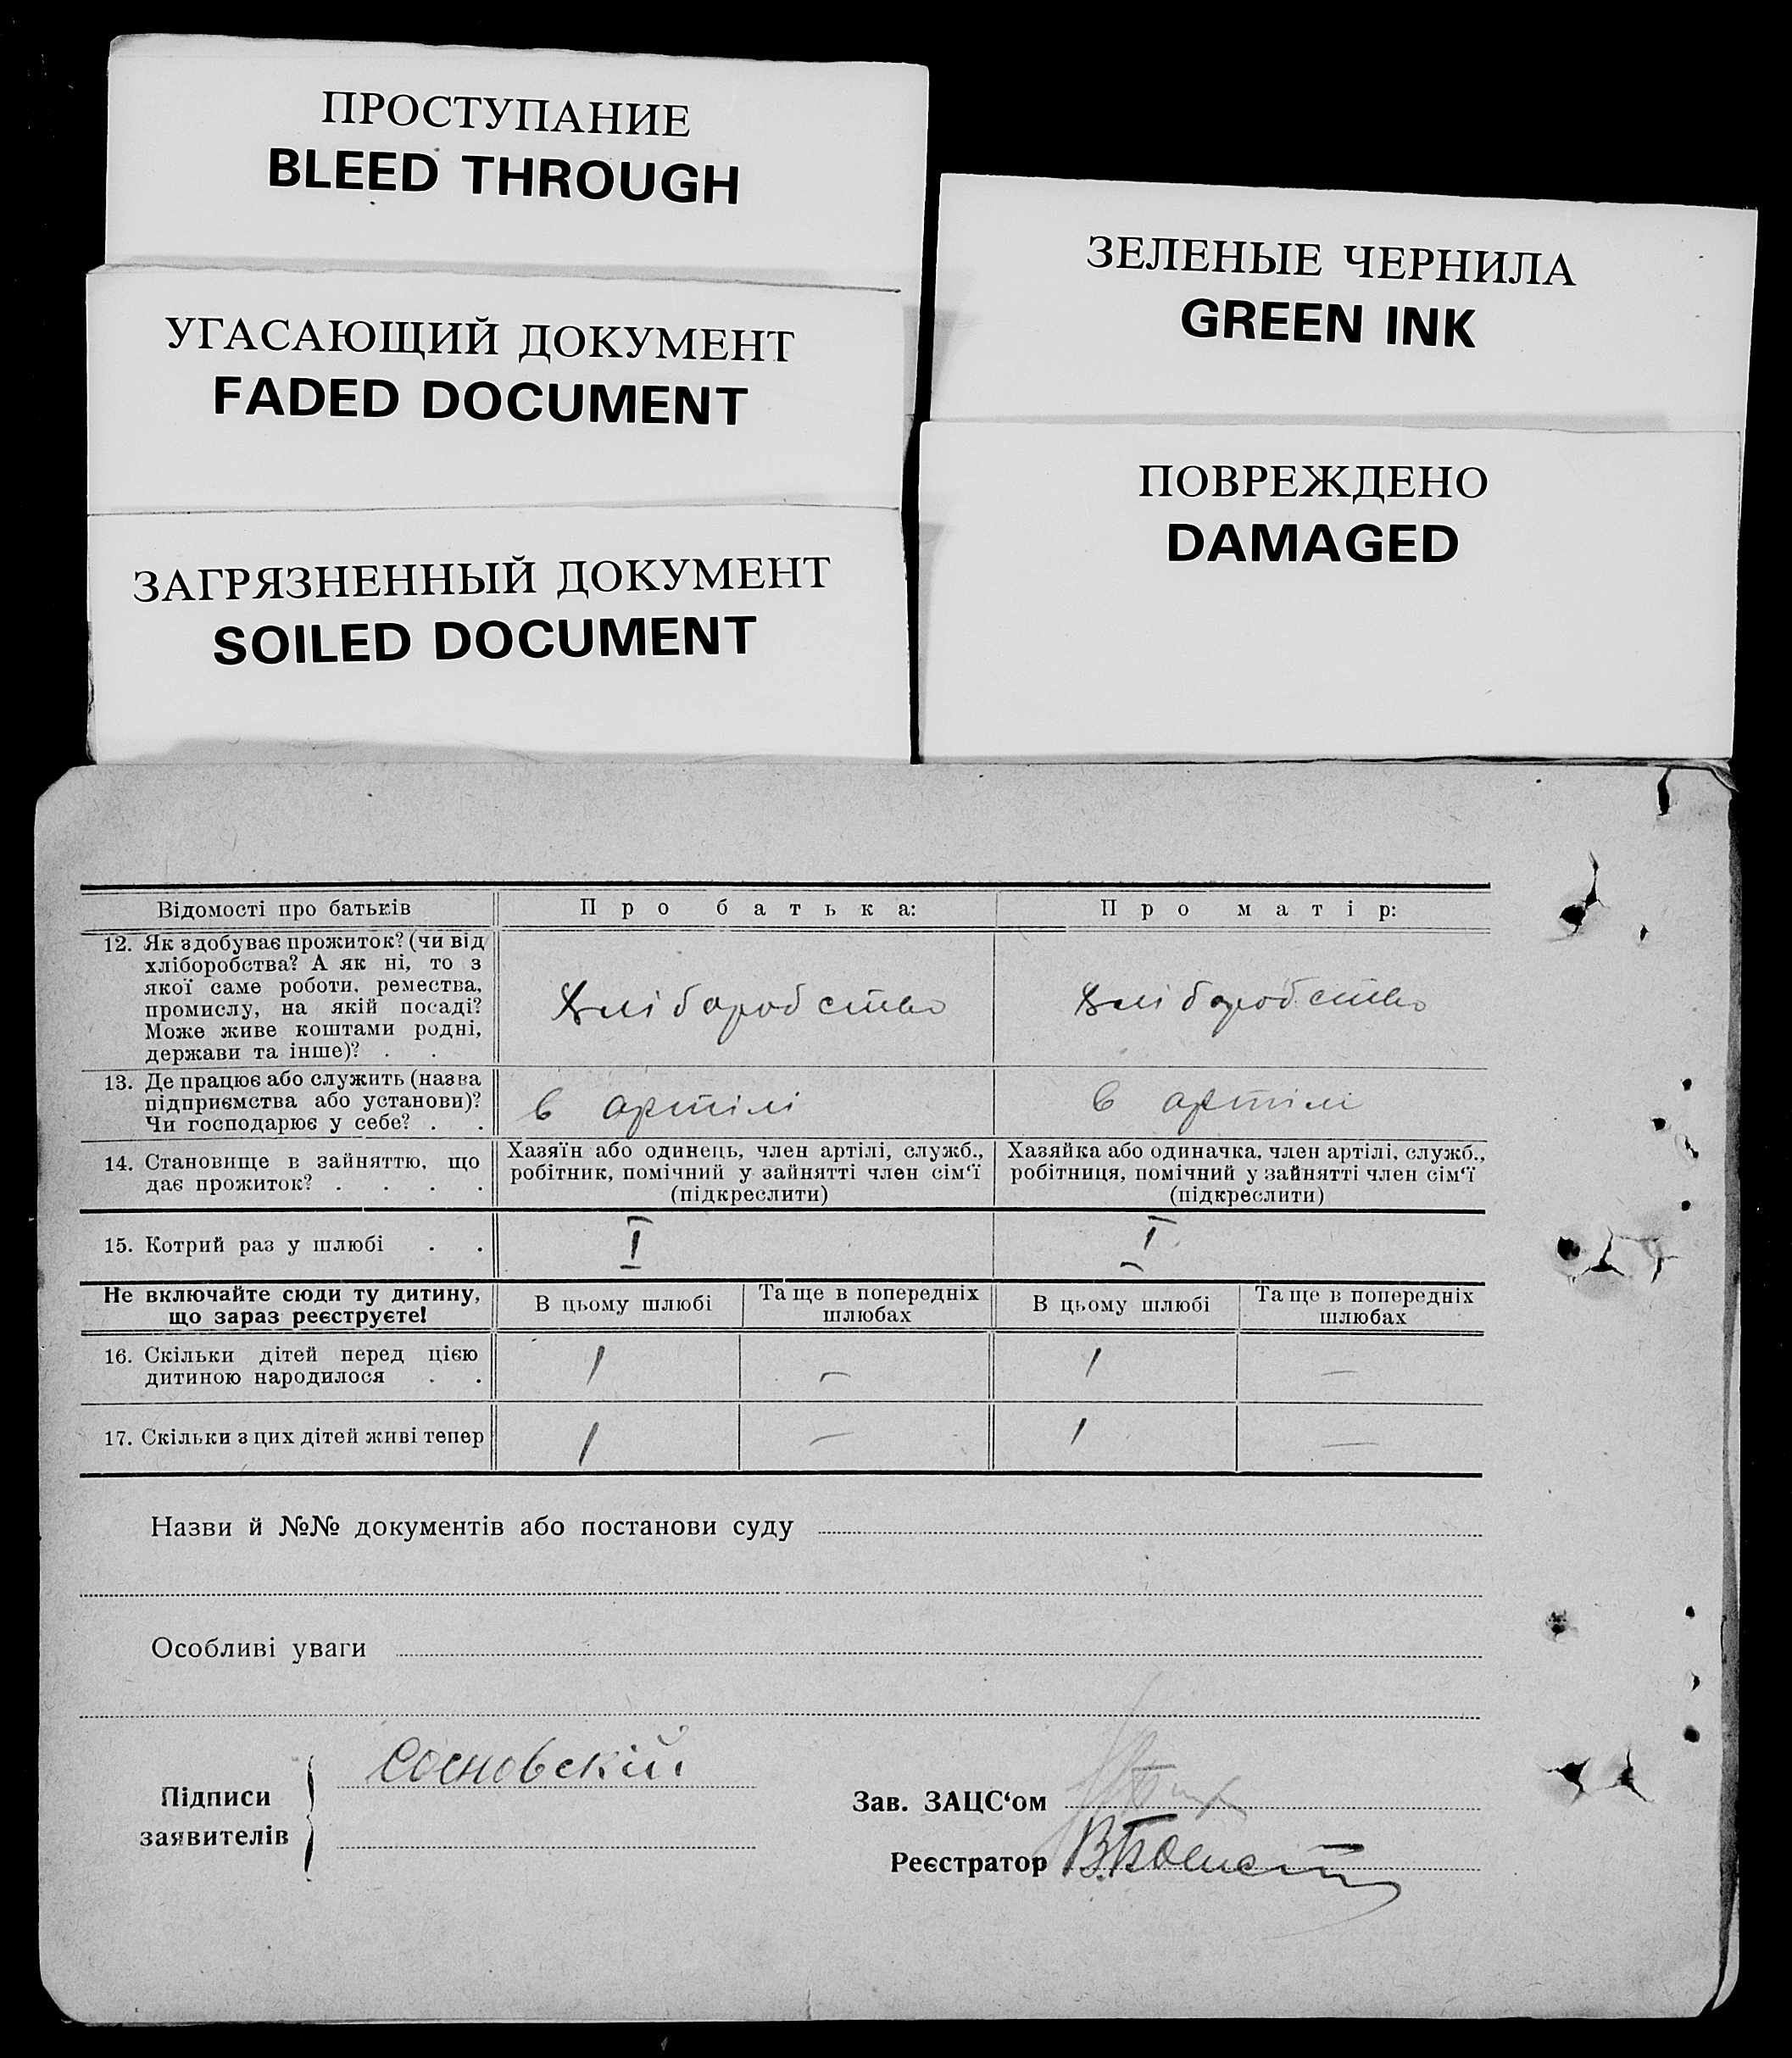 ПРОСТУПАНИЕ
BLEED THROUGH
УГАСАЮЩИЙ ДОКУМЕНТ
FADED DOCUMENT
ЗАГРЯЗНЕННЫЙ ДОКУМЕНТ
SOILED DOCUMENT
ЗЕЛЕНЫЕ ЧЕРНИЛА
GREEN INK
ПОВРЕЖДЕНО
DAMAGED
Відомості про батьків
Про батька:
Про матір:
12. Як здобуває прожиток? (чи від
хліборобства? А як ні, то з
якої саме роботи, ремества,
промислу, на якій посаді?
Може живе коштами родні,
держави та інше)? . .
Хліборобство
Хліборобство
13. Де працює або служить (назва
підприємства або установи)?
Чи господарює у себе? . .
в артілі
в артілі
14. Становище в зайняттю, що
дає прожиток? . . . .
Хазяїн або одинець, член артілі, служб.,
робітник, помічний у зайнятті член сім‘ї
(підкреслити)
Хазяйка або одиначка, член артілі, служб.,
робітниця, помічний у зайнятті член сім‘ї
(підкреслити)
15. Котрий раз у шлюбі . .
I
I
Не включайте сюди ту дитину,
що зараз реєструєте!
В цьому шлюбі
Та ще в попередніх
шлюбах
В цьому шлюбі
Та ще в попередніх
шлюбах
16. Скільки дітей перед цією
дитиною народилося . .
1
—
1
—
17. Скільки з цих дітей живі тепер
1
—
1
—
Назви й №№ документів або постанови суду
Особливі уваги
Підписи
заявителів
Сосновскій
Зав. ЗАЦС‘ом
Реєстратор